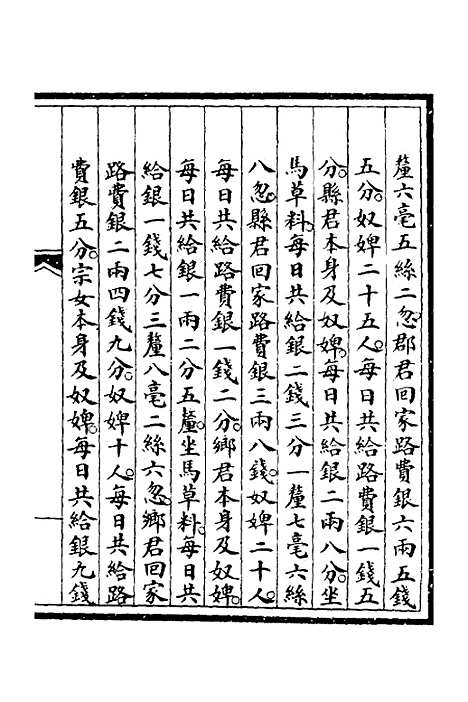 釐六毫五絲二忽。郡君回家路費銀六兩五錢
五分。奴婢二十五人。每日共給路費銀一錢五
分。縣君本身及奴婢。每日共給銀二兩八分。坐
馬草料。每日共給銀二錢三分一釐七毫六絲
八忽。縣君回家路費銀三兩八錢。奴婢二十人。
每日共給路費銀一錢二分。鄉君本身及奴婢。
每日共給銀一兩二分五釐。坐馬草料。每日共
給銀一錢七分三釐八毫二絲六忽。鄉君回家
路費銀二兩四錢九分。奴婢十人。每日共給路
費銀五分。宗女本身及奴婢。每日共給銀九錢